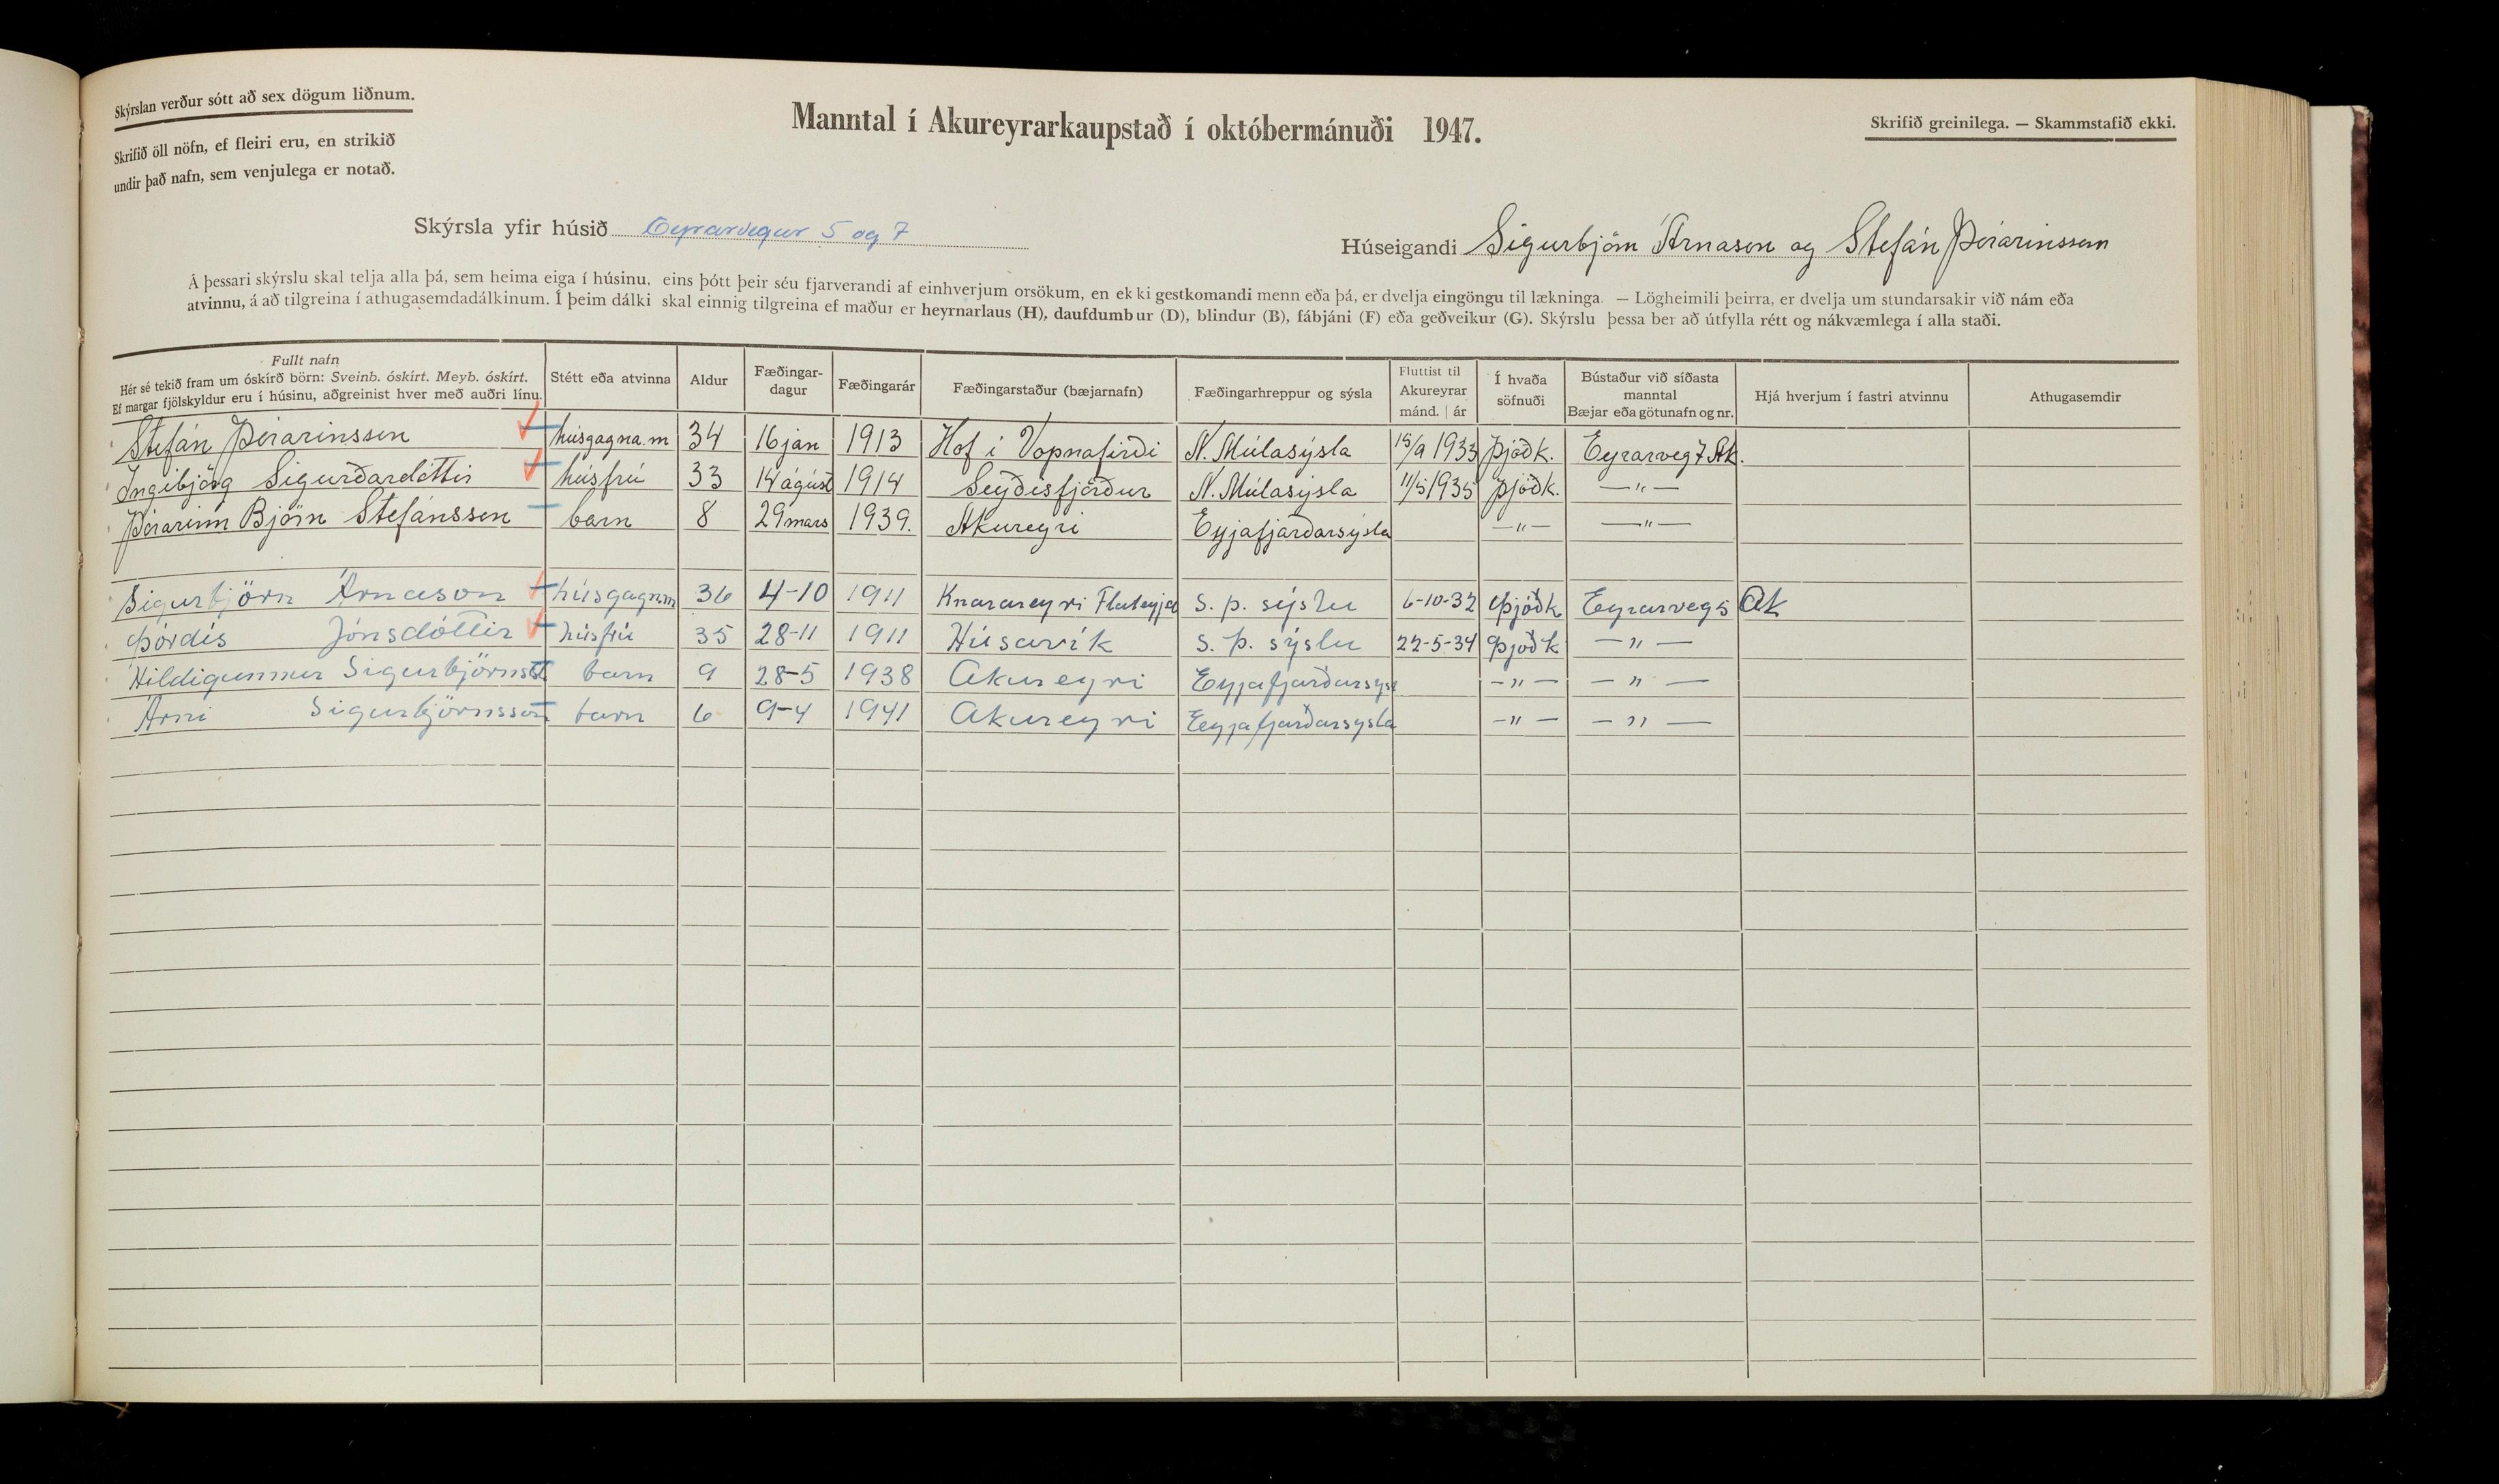 Skýrslan verður sótt að sex dögum liðnum.
Skrifið öll nöfn, ef fleiri eru, en strikið
undir það nafn, sem venjulega er notað.
Manntal í Akureyrarkaupstað í októbermánuði 1947.
Skrifið greinilega. — Skammstafið ekki.
Skýrsla yfir húsið Eyrarvegur 5 og 7
Húseigandi Sigurbjörn Árnason og Stefán Þórarinsson
Á þessari skýrslu skal telja alla þá, sem heima eiga í húsinu. eins þótt þeir séu fjarverandi af einhverjum orsökum, en ekki gestkomandi menn eða þá, er dvelja eingöngu til lækninga. — Lögheimili þeirra, er dvelja um stundarsakir við nám eða
atvinnu, á að tilgreina í athugasemdadálkinum. Í þeim dálki skal einnig tilgreina ef maður er heyrnarlaus (H), daufdumbur (D), blindur (B), fábjáni (F) eða geðveikur (G). Skýrslu þessa ber að útfylla rétt og nákvæmlega í alla staði.
Fullt nafn
Hér sé tekið fram um óskírð börn: Sveinb. óskírt. Meyb. óskírt.
Ef margar fjölskyldur eru í húsinu, aðgreinist hver með auðri línu.
Stétt eða atvinna
Aldur
Fæðingar-
dagur
Fæðingarár
Fæðingarstaður (bæjarnafn)
Fæðingarhreppur og sýsla
Fluttist til
Akureyrar
mánd. | ár
Í hvaða
söfnuði
Bústaður við síðasta
manntal
Bæjar eða götunafn og nr.
Hjá hverjum í fastri atvinnu
Athugasemdir
Stefán Þórarinsson húsgagna.m 34 16 jan 1913 Hof í Vopnafirði N. Múlasýsla 15/9 1933 Þjóðk. Eyrarveg 7 Ak.
Ingibjörg Sigurðardóttir húsfrú 33 14 ágúst 1914 Seyðisfjörður N. Múlasýsla 11/5 1935 Þjóðk. —"—
Þórarinn Björn Stefánsson barn 8 29 mars 1939. Akureyri Eyjafjarðarsýsla —"— —"—
Sigurbjörn Árnason húsgagnm 36 4-10 1911 Knarareyri Flateyjad S. þ. sýslu 6-10-32 Þjóðk Eyrarveg 5 Ak
Þórdís Jónsdóttir húsfrú 35 28-11 1911 Húsavík S. þ. sýslu 22-5-34 Þjóðk —"—
Hildigunnur Sigurbjörnsd barn 9 28-5 1938 Akureyri Eyjafjarðarsýsl —"— —"—
Árni Sigurbjörnsson barn 6 9-4 1941 Akureyri Eeyjafjarðarsysla —"— —"—